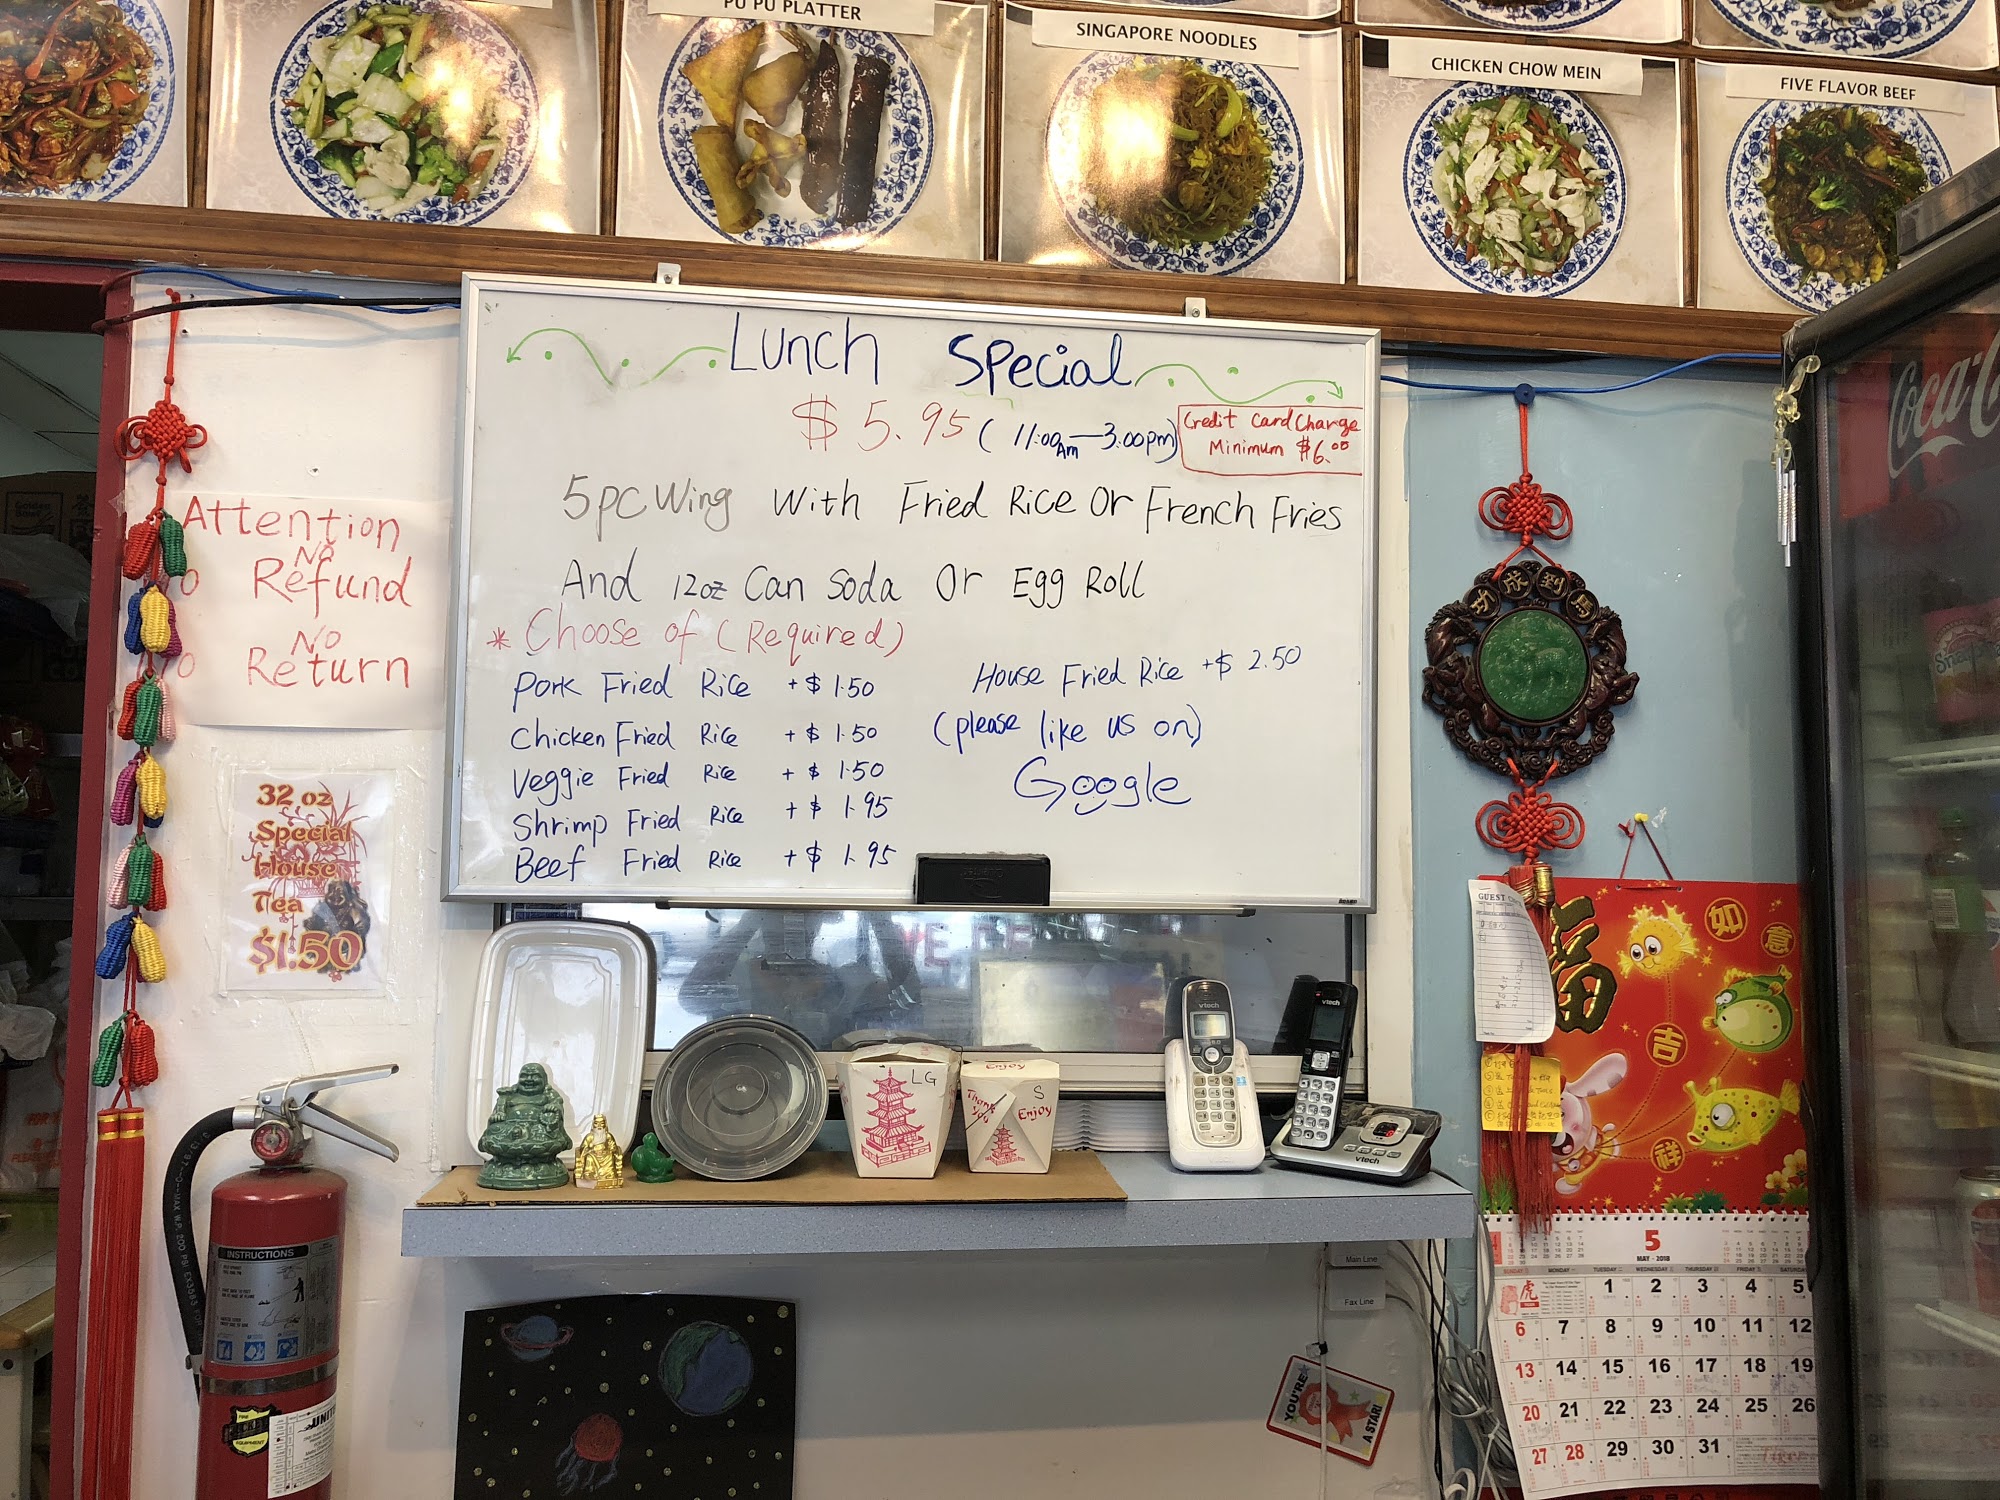 PU PU PLATTER
SINGAPORE NOODLES
CHICKEN CHOW MEIN
FIVE FLAVOR BEEF
Lunch Special
$5.95 (11:00Am—3:00pm)
Credit Card Charge
Minimum $6.00
5pc Wing With Fried Rice Or French Fries
And 12oz Can Soda Or Egg Roll
* Choose of (Required)
Pork Fried Rice +$1.50
Chicken Fried Rice +$1.50
Veggie Fried Rice +$1.50
Shrimp Fried Rice +$1.95
Beef Fried Rice +$1.95
House Fried Rice +$2.50
(please like us on)
Google
Attention
No
Refund
No
Return
32 oz
Special
House
Tea
$1.50
Coca-C
功成到馬
LG
Enjoy
Thank You
S
Enjoy
vtech
vtech
vtech
Main Line
Fax Line
YOU'RE
A STAR!
INSTRUCTIONS
EQUIPMENT
GUEST
福
如意
吉
祥
5
MAY - 2018
SUNDAY MONDAY TUESDAY WEDNESDAY THURSDAY FRIDAY SATURDA
虎
1 2 3 4 5
6 7 8 9 10 11 12
13 14 15 16 17 18 19
20 21 22 23 24 25 26
27 28 29 30 31